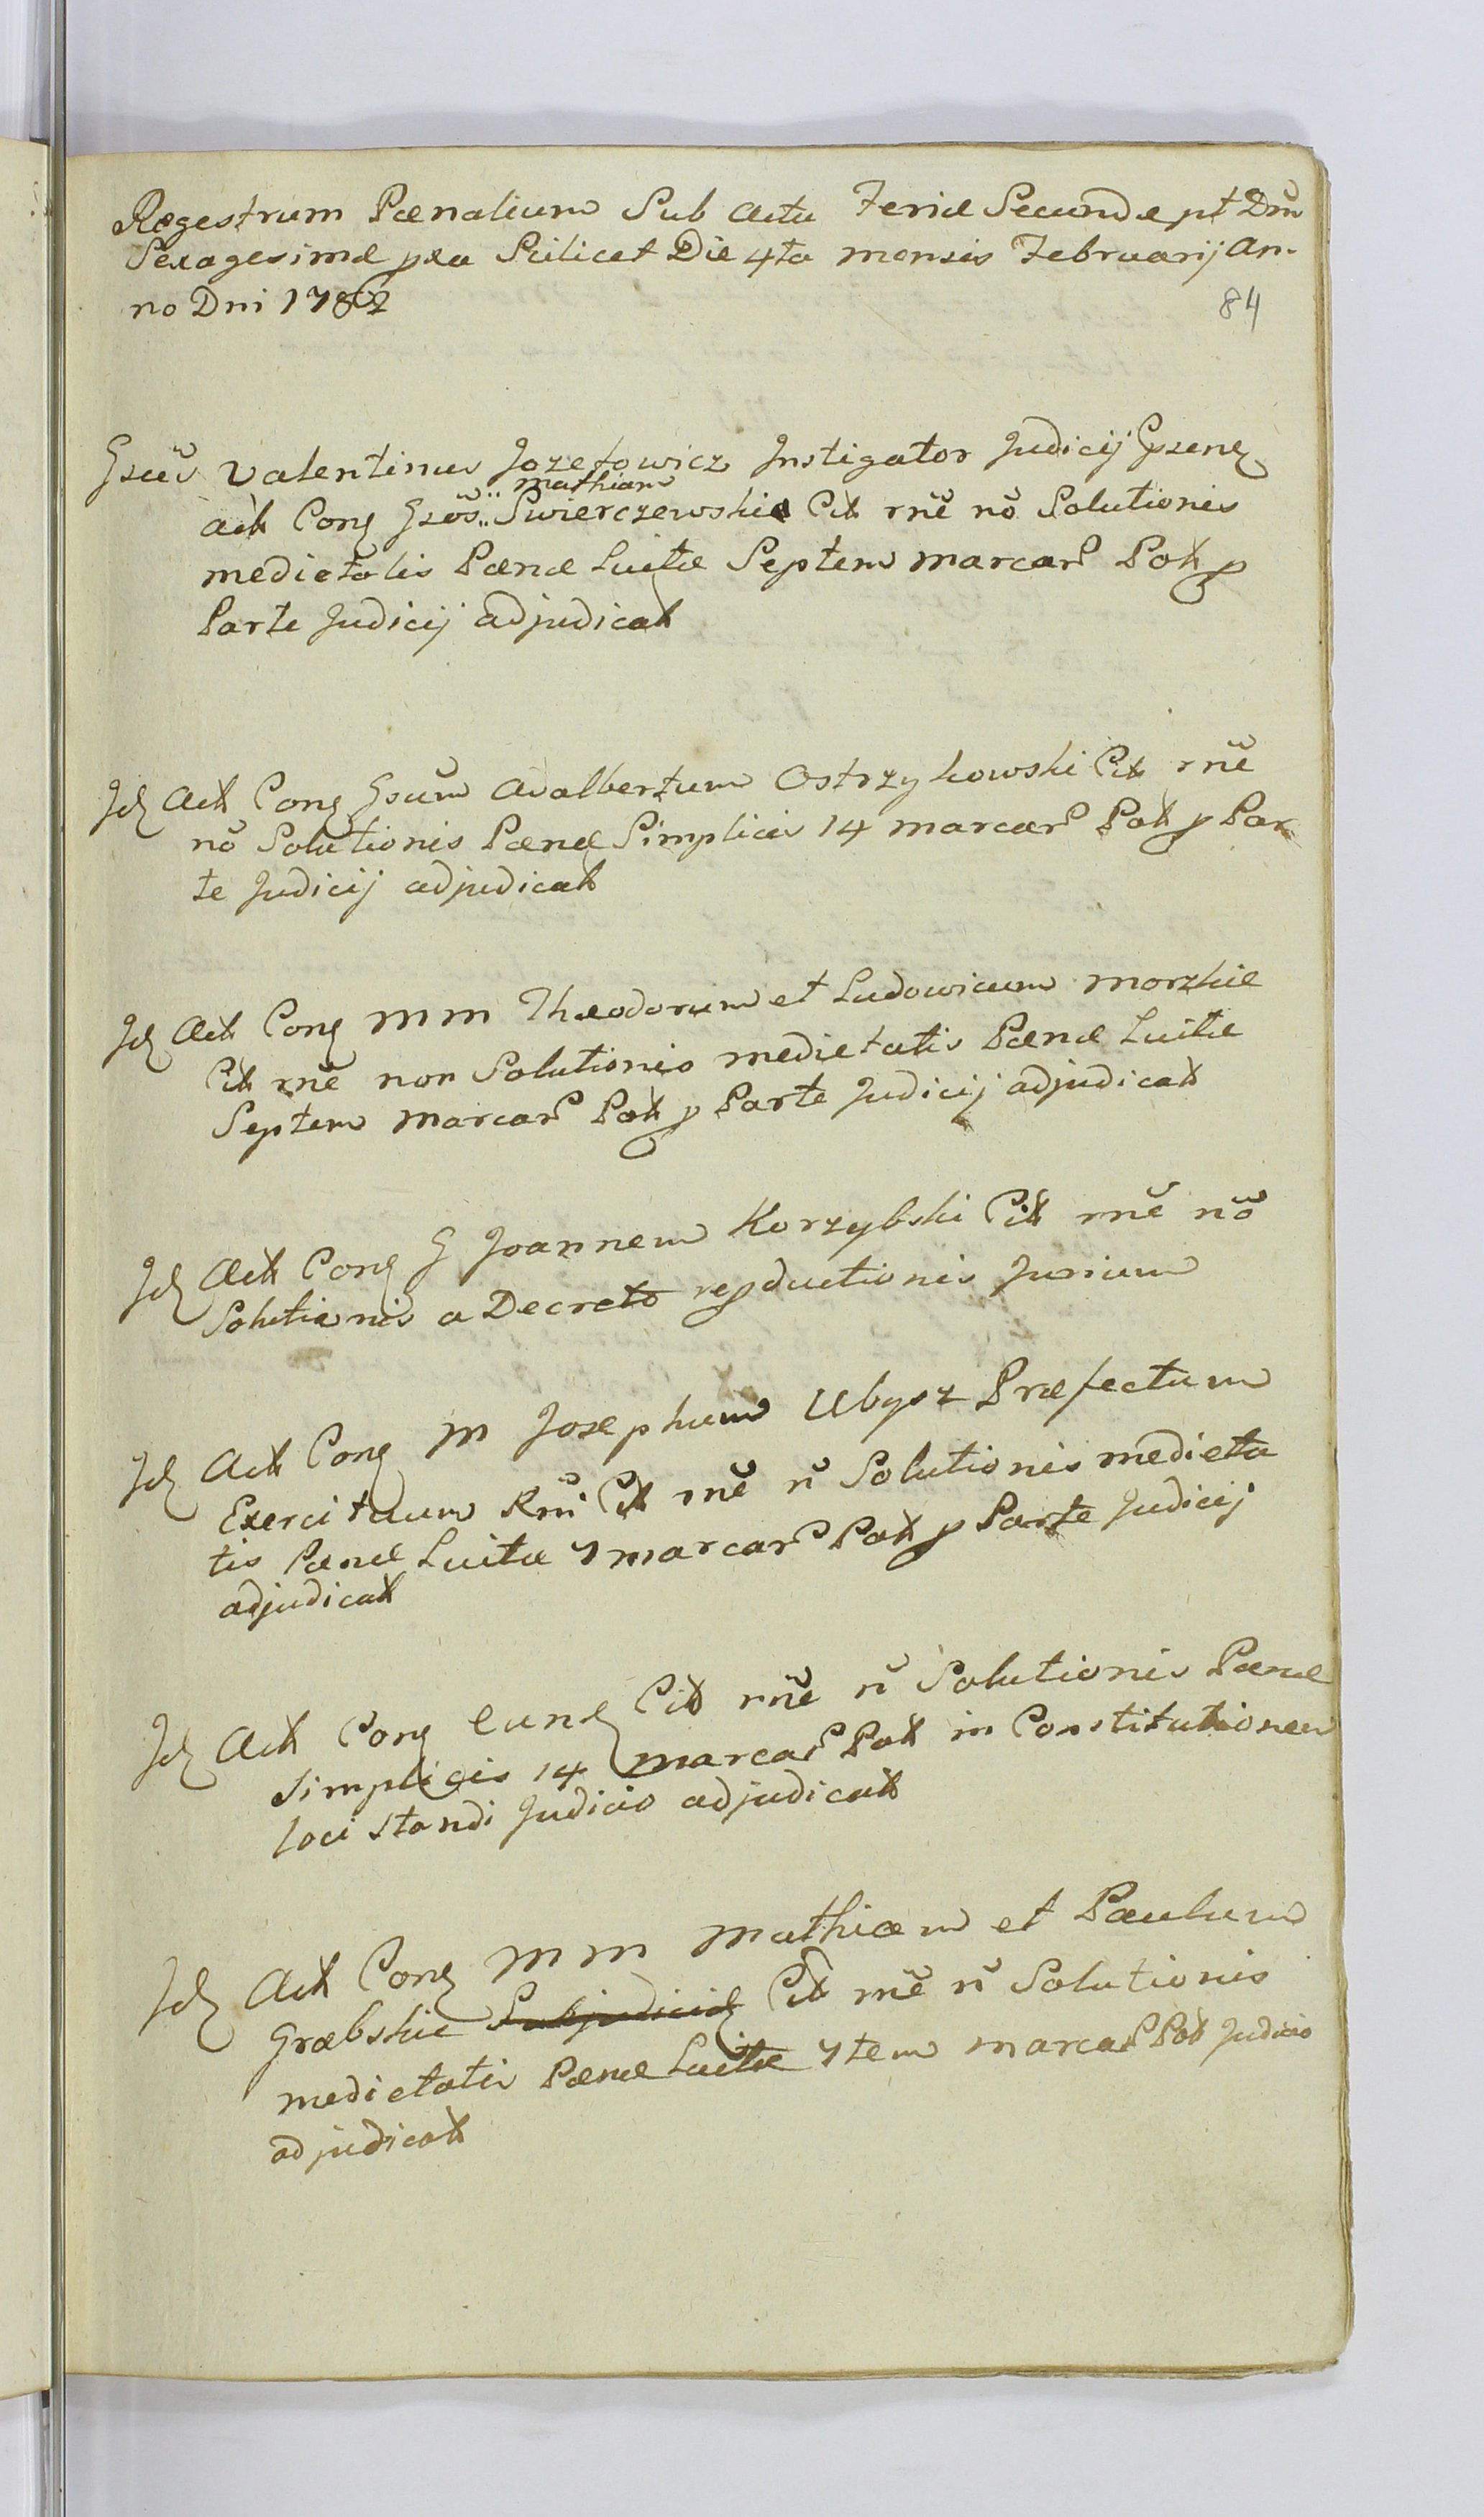 Regestrum Pœnalium Sub Actu Feriæ Secundæ pt Dm̃
Sexagesimæ pea Scilicet Die 4ta mensis Februarij An-
no Dni 1782
84
Gsũs Valentinus Jozefowicz Instigator Judicij Psenq
Mathiam
Actt Conq Gsõs Swierczewskie Citt rñe nõ Solutionis
medietatis Pænæ Luitæ Septem marcar Pott p
Parte Judicij adjudicatt
Jd Actt Conq Gsũm Adalbertum Ostrzykowski Citt rñe
nõ Solutionis Pænæ Simplicis 14 marcar Pott p Par
te Judicij adjudicatt
Jd Actt Conq MM Theodorum et Ludowicum Morzkie
Citt rñe non Solutionis medietatis Pænæ Luitæ
Septem Marcar Pott p Parte Judicij adjudicatt
Jd Actt Conq G Joannem Korzybski Citt rñe nõ
Solutionis a Decreto repductionis Jurium
Jd Actt Conq M Josephum Ubysz Præfectum
Exercituum Rñi Citt rñe ñ Solutionis medieta
tis Pænæ Luitæ 7 marcar Pott p Parte Judicij
adjudicatt
Jd Actt Conq eund Citt rñe ñ Solutionis Pænæ
Simplicis 14 marcar Pott in Constitutionem
loci standi Judicio adjudicatt
Jd Actt Conq MM Mathiam et Paulum
Grabskie Citt rñe ñ Solutionis
medietatis Pænæ Luitæ 7tem marcar Pott Judicio
adjudicatt